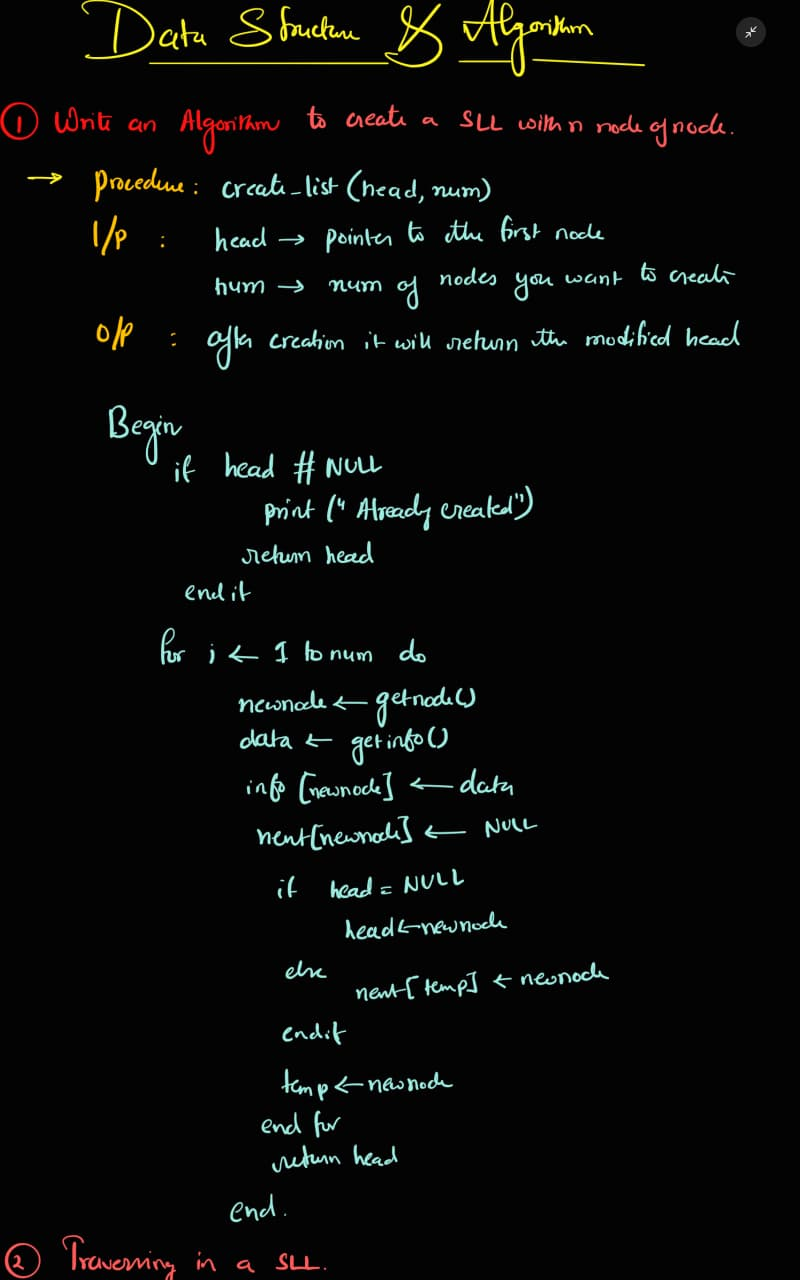 Data Structure & Algorithm
① Write an Algorithm to create a SLL with n node of node.
→ Procedure : create_list (head, num)
I/P : head → pointer to the first node
num → num of nodes you want to create
O/P : after creation it will return the modified head
Begin
if head # NULL
print (" Already created")
return head
end if
for i ← 1 to num do
newnode ← getnode()
data ← getinfo()
info [newnode] ← data
next[newnode] ← NULL
if head = NULL
head ← newnode
else
next[temp] ← newnode
endif
temp ← newnode
end for
return head
end.
② Traversing in a SLL.